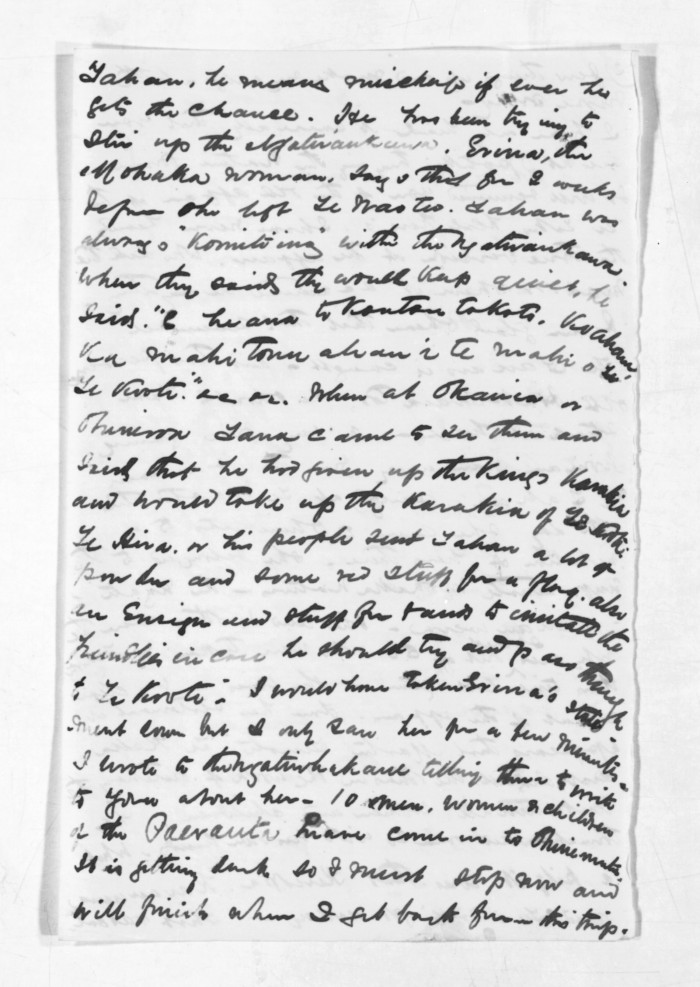 Tahau, he means mischeif if ever he
gets the chance. He has been trying to
Stir up the Ngatiraukawa. Erina, the
Mohaka woman, says that for 2 weeks
before she left Te Wastes. Tahau was
always "Komitiing" with the Ngatiraukawa
when they said they would keep quiet, he
said. "E he ana to Koutou to Koti.
Ka mahi tonu ahau i te mahi o Te
Te Kooti." &c &c. When at Okauia or
Ohineroa Tana came to see them and
said that he had given up the Kings Karakia
and would take up the Karakia of Te Kooti.
Te Hira. or his people sent Tahau a lot of
powder and some red stuff for a flag. also
an Ensign and stuff for bands to imitate the
friendlies in case he should try and pass through
to Te Kooti". I would have taken Erina's state
ment down but I only saw her for a few minutes -
I wrote to the Ngatiwhakaue telling them to write
to you about her - 10 men, women & children
of the have come in to Ohinemutu.
It is getting dark so I must stop now and
will finish when I get back from this trip.